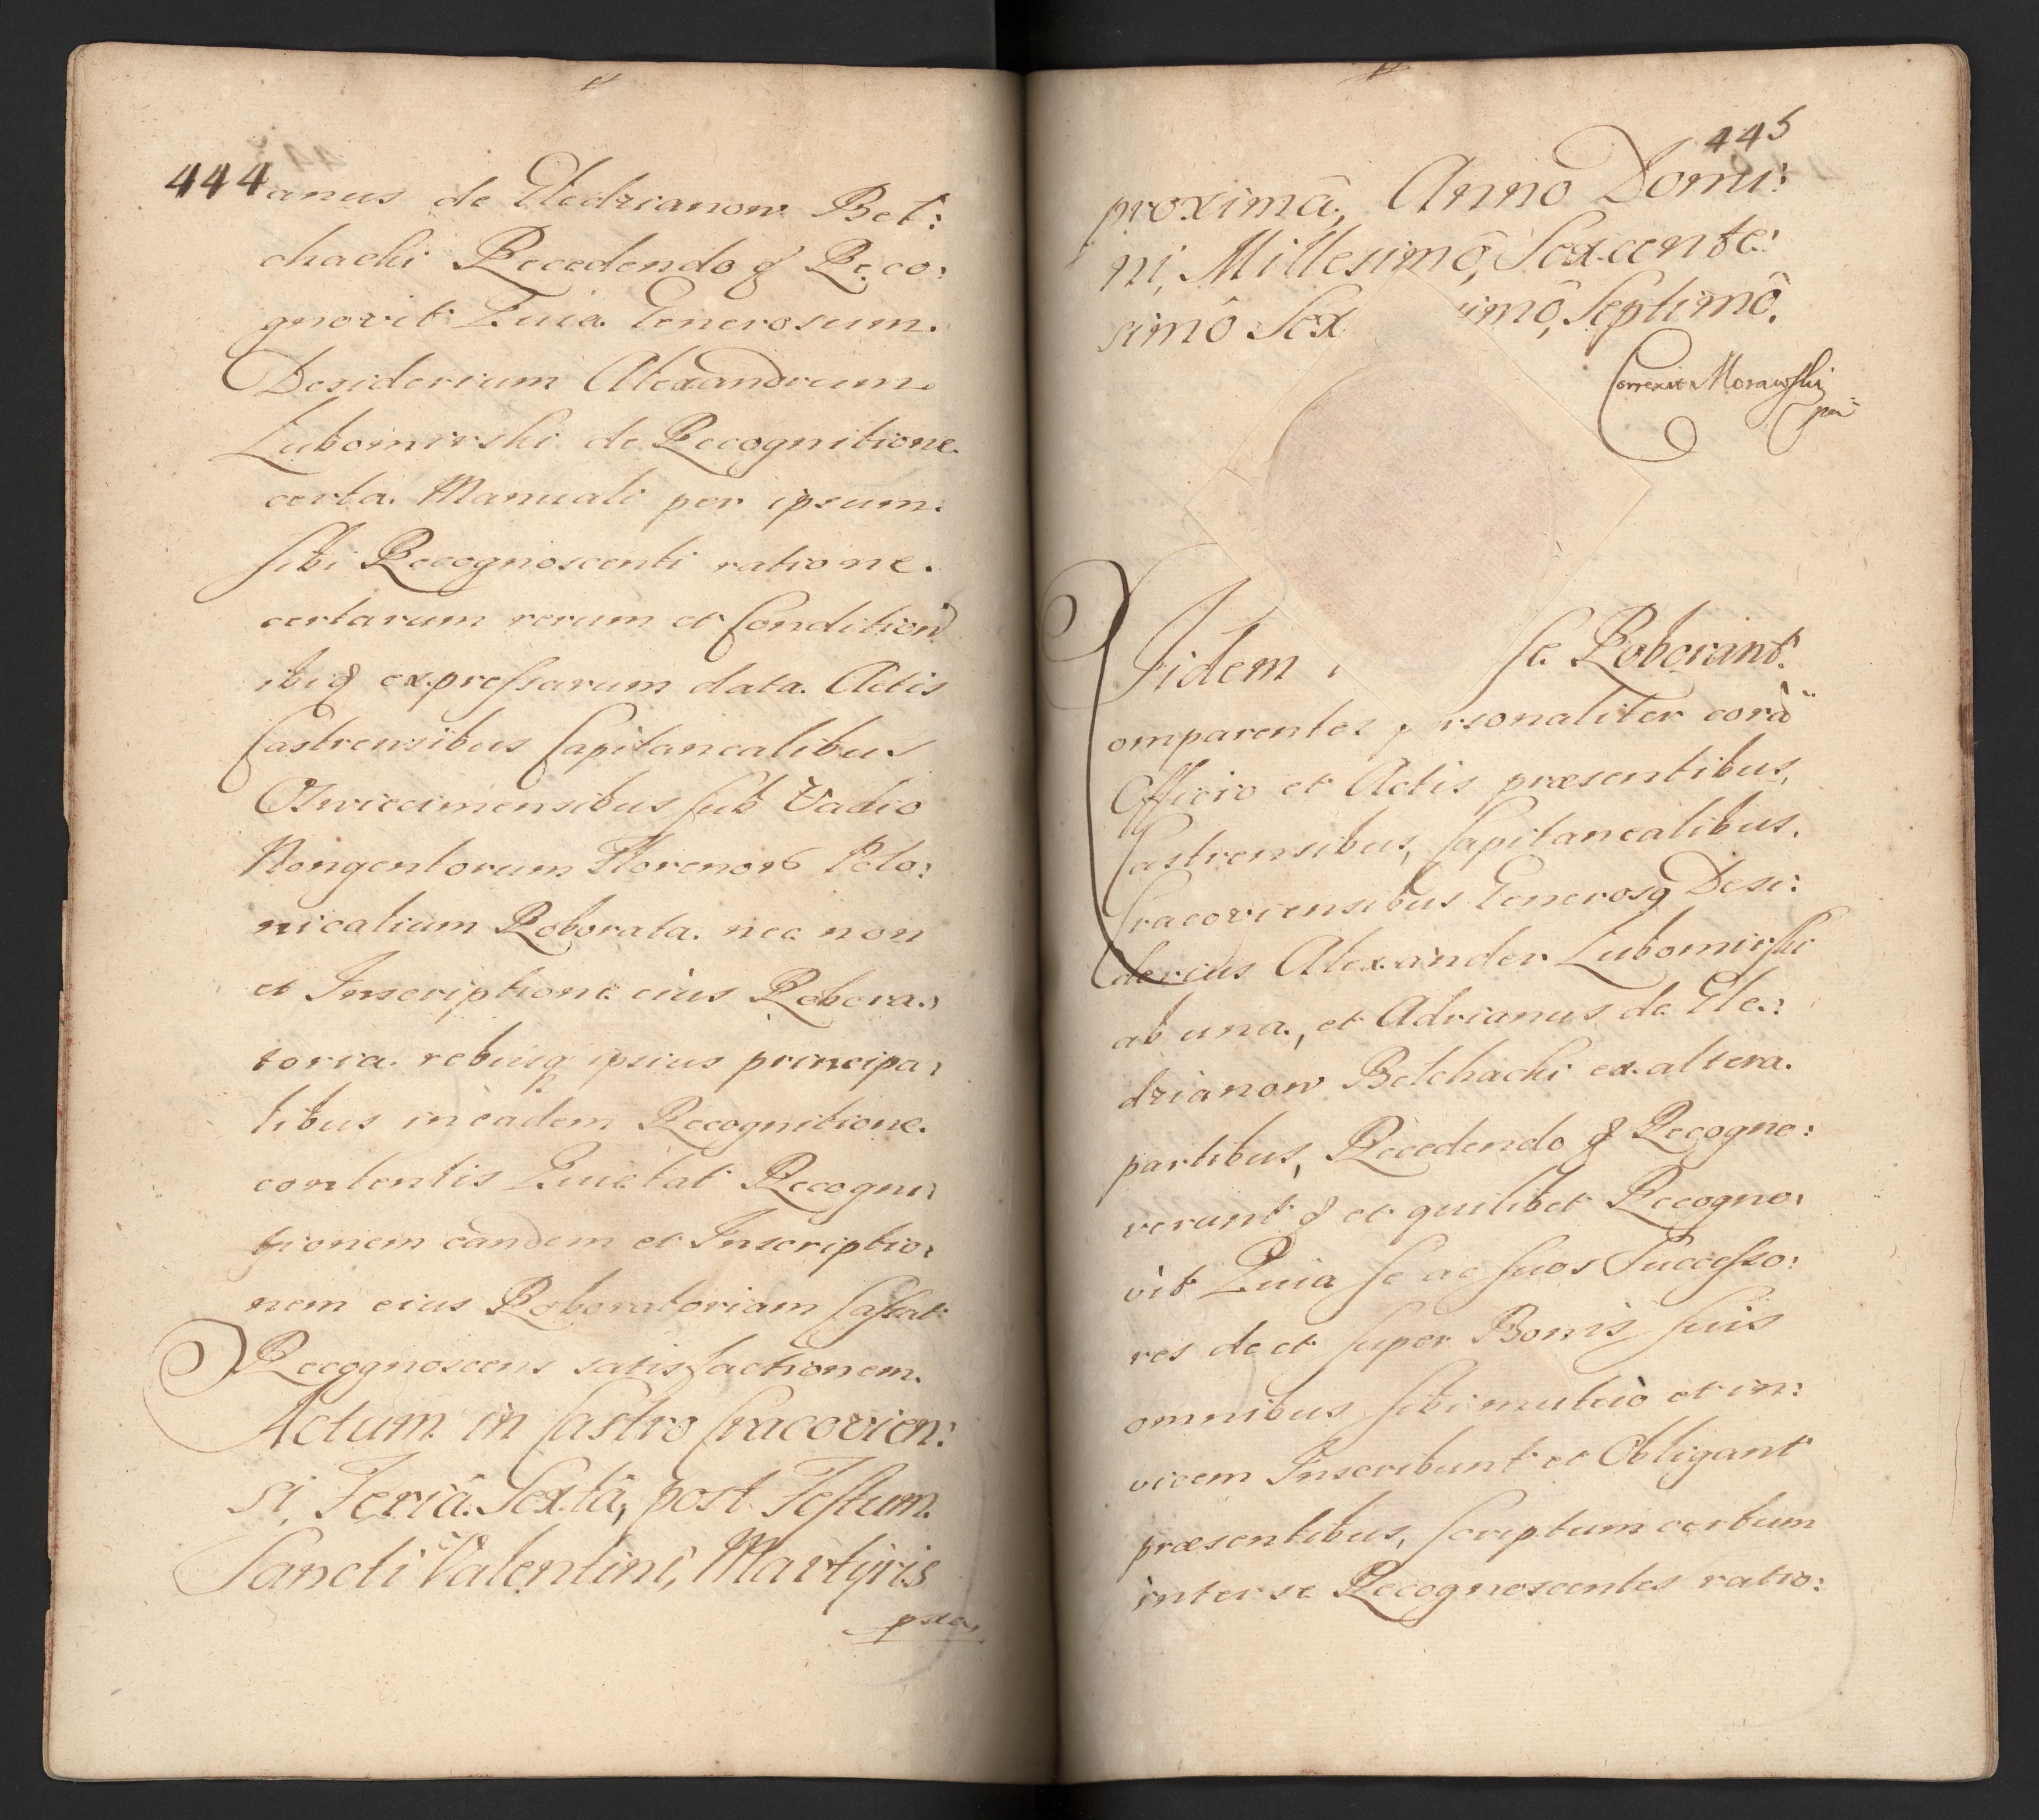 444
anus de Gledzianow Bet:
chachi Recedendo & Reco:
gnovit Quia Generosum
Desiderium Alexandrum
Lubomirski de Recognitione
certa Manuali per ipsum
sibi Recognoscenti ratione
certarum rerum et Condition
ibi& expressarum data Actis
Castrensibus Capitanealibus
Oswiecimensibus sub Vadio
Nongentorum Floreno& Polo:
nicalium Roborata nec non
et Inscriptione eius Robora:
toria rebusq ipsius principa:
libus in eadem Recognitione
contentis Quietat Recogni:
tionem eandem et Inscriptio:
nem eius Roboratoriam Cassat
Recognoscens satisfactionem.
Actum in Castro Cracovien:
si, Feriâ Sextâ, post Festum
Sancti Valentini, Martyris
pxa,
445
proximâ, Anno Domi:
ni, Millesimô, Sexcente:
simô Sex imô, Septimô.
Correxit Morawski
Iidem se Roborant.
omparentes rsonaliter corã
Officio et Actis præsentibus,
Castrensibus, Capitanealibus,
Cracoviensibus Generosq Desi:
derius Alexander Lubomirski
ab una, et Adrianus de Gle:
dzianow Betchachi ex altera
partibus, Recedendo & Recogno:
verunt & et quilibet Recogno:
vit Quia se ac suos Successo:
res de et super Bonis suis
omnibus sibi mutuò et in:
vicem Inscribunt et Obligant
præsentibus, scriptum certum
inter se Recognoscentes ratio: